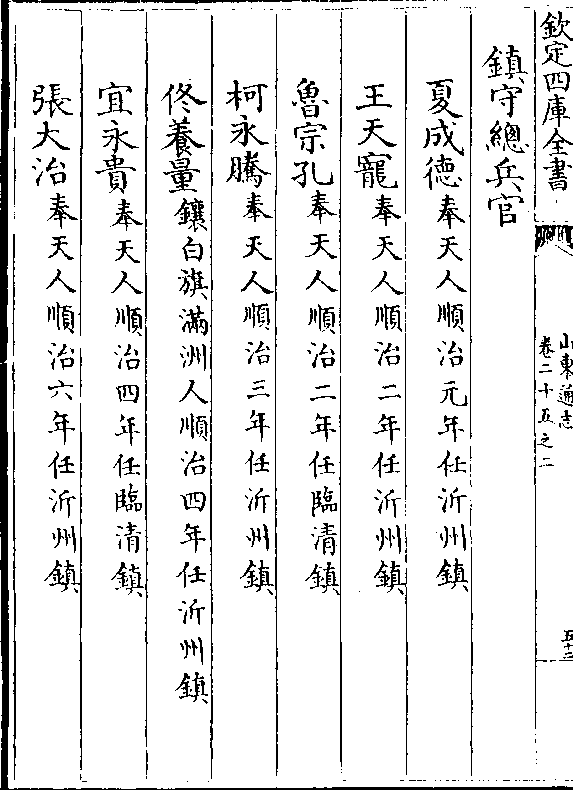 欽定四庫全書
山東通志
卷二十五之二
五十二
鎮守總兵官
夏成德奉天人順治元年任沂州鎮
王天寵奉天人順治二年任沂州鎮
魯宗孔奉天人順治二年任臨清鎮
柯永騰奉天人順治三年任沂州鎮
佟養量鑲白旗滿洲人順治四年任沂州鎮
宜永貴奉天人順治四年任臨清鎮
張大治奉天人順治六年任沂州鎮